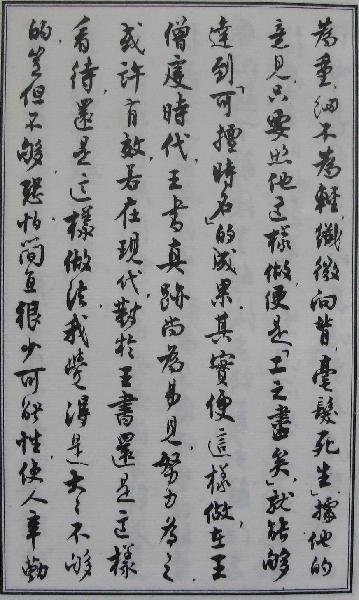 為重,細不為輕,纖微向背,毫髮死生」,據他的
意見,只要照他这樣做,便是「工之盡矣」,就能够
達到「可擅時名」的成果。其實便這樣做,在王
僧虔時代,王書真跡尚為易見,努力為之,
或許有效,若在現代,對於王書還是这樣
看待,還是这樣做法,我覺得是大〻不够
的,豈但不够,恐怕簡直很少可能性,使人辛勤